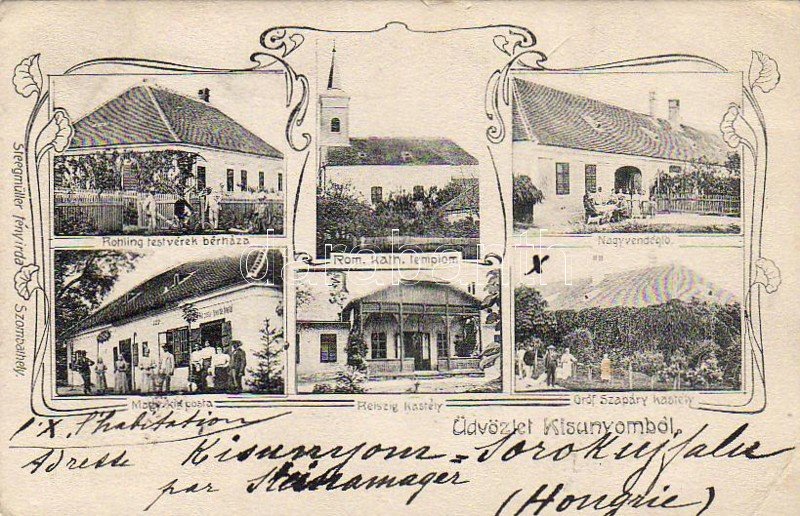 Steegmüller fényirda Szombathely.
Rohling testvérek bérháza
Rom. kath. templom
Nagyvendéglő.
darabanth
X
M. kir. posta
Reiszig kastély
Gróf Szapáry kastély
Üdvözlet Kisunyomból.
l'X, l'habitation
Adresse Kisunyom = Sorokujfalu
par Steinamager
(Hongrie)